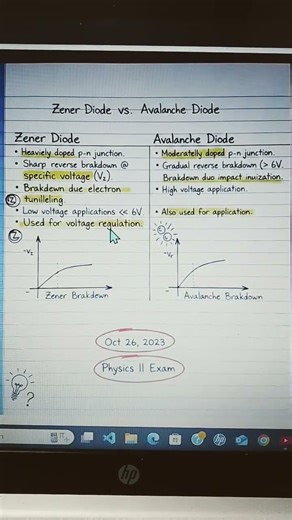 Zener Diode vs. Avalanche Diode
Zener Diode
• Heaviely doped p-n junction.
• Sharp reverse brakdown @
specific voltage (Vz)
• Breakdown due electron
Z tunilleling.
• Low voltage applications << 6V
• Used for voltage regulation.
Z
-Vz
Zener Brakdown
Avalanche Diode
• Moderatelly doped p-n junction.
• Gradual reverse breakdown (> 6V.
Breakdown duo impact inuization.
• High voltage application.
• Also used for application.
Avalanche Brakdown
Oct 26, 2023
Physics || Exam
?
hp